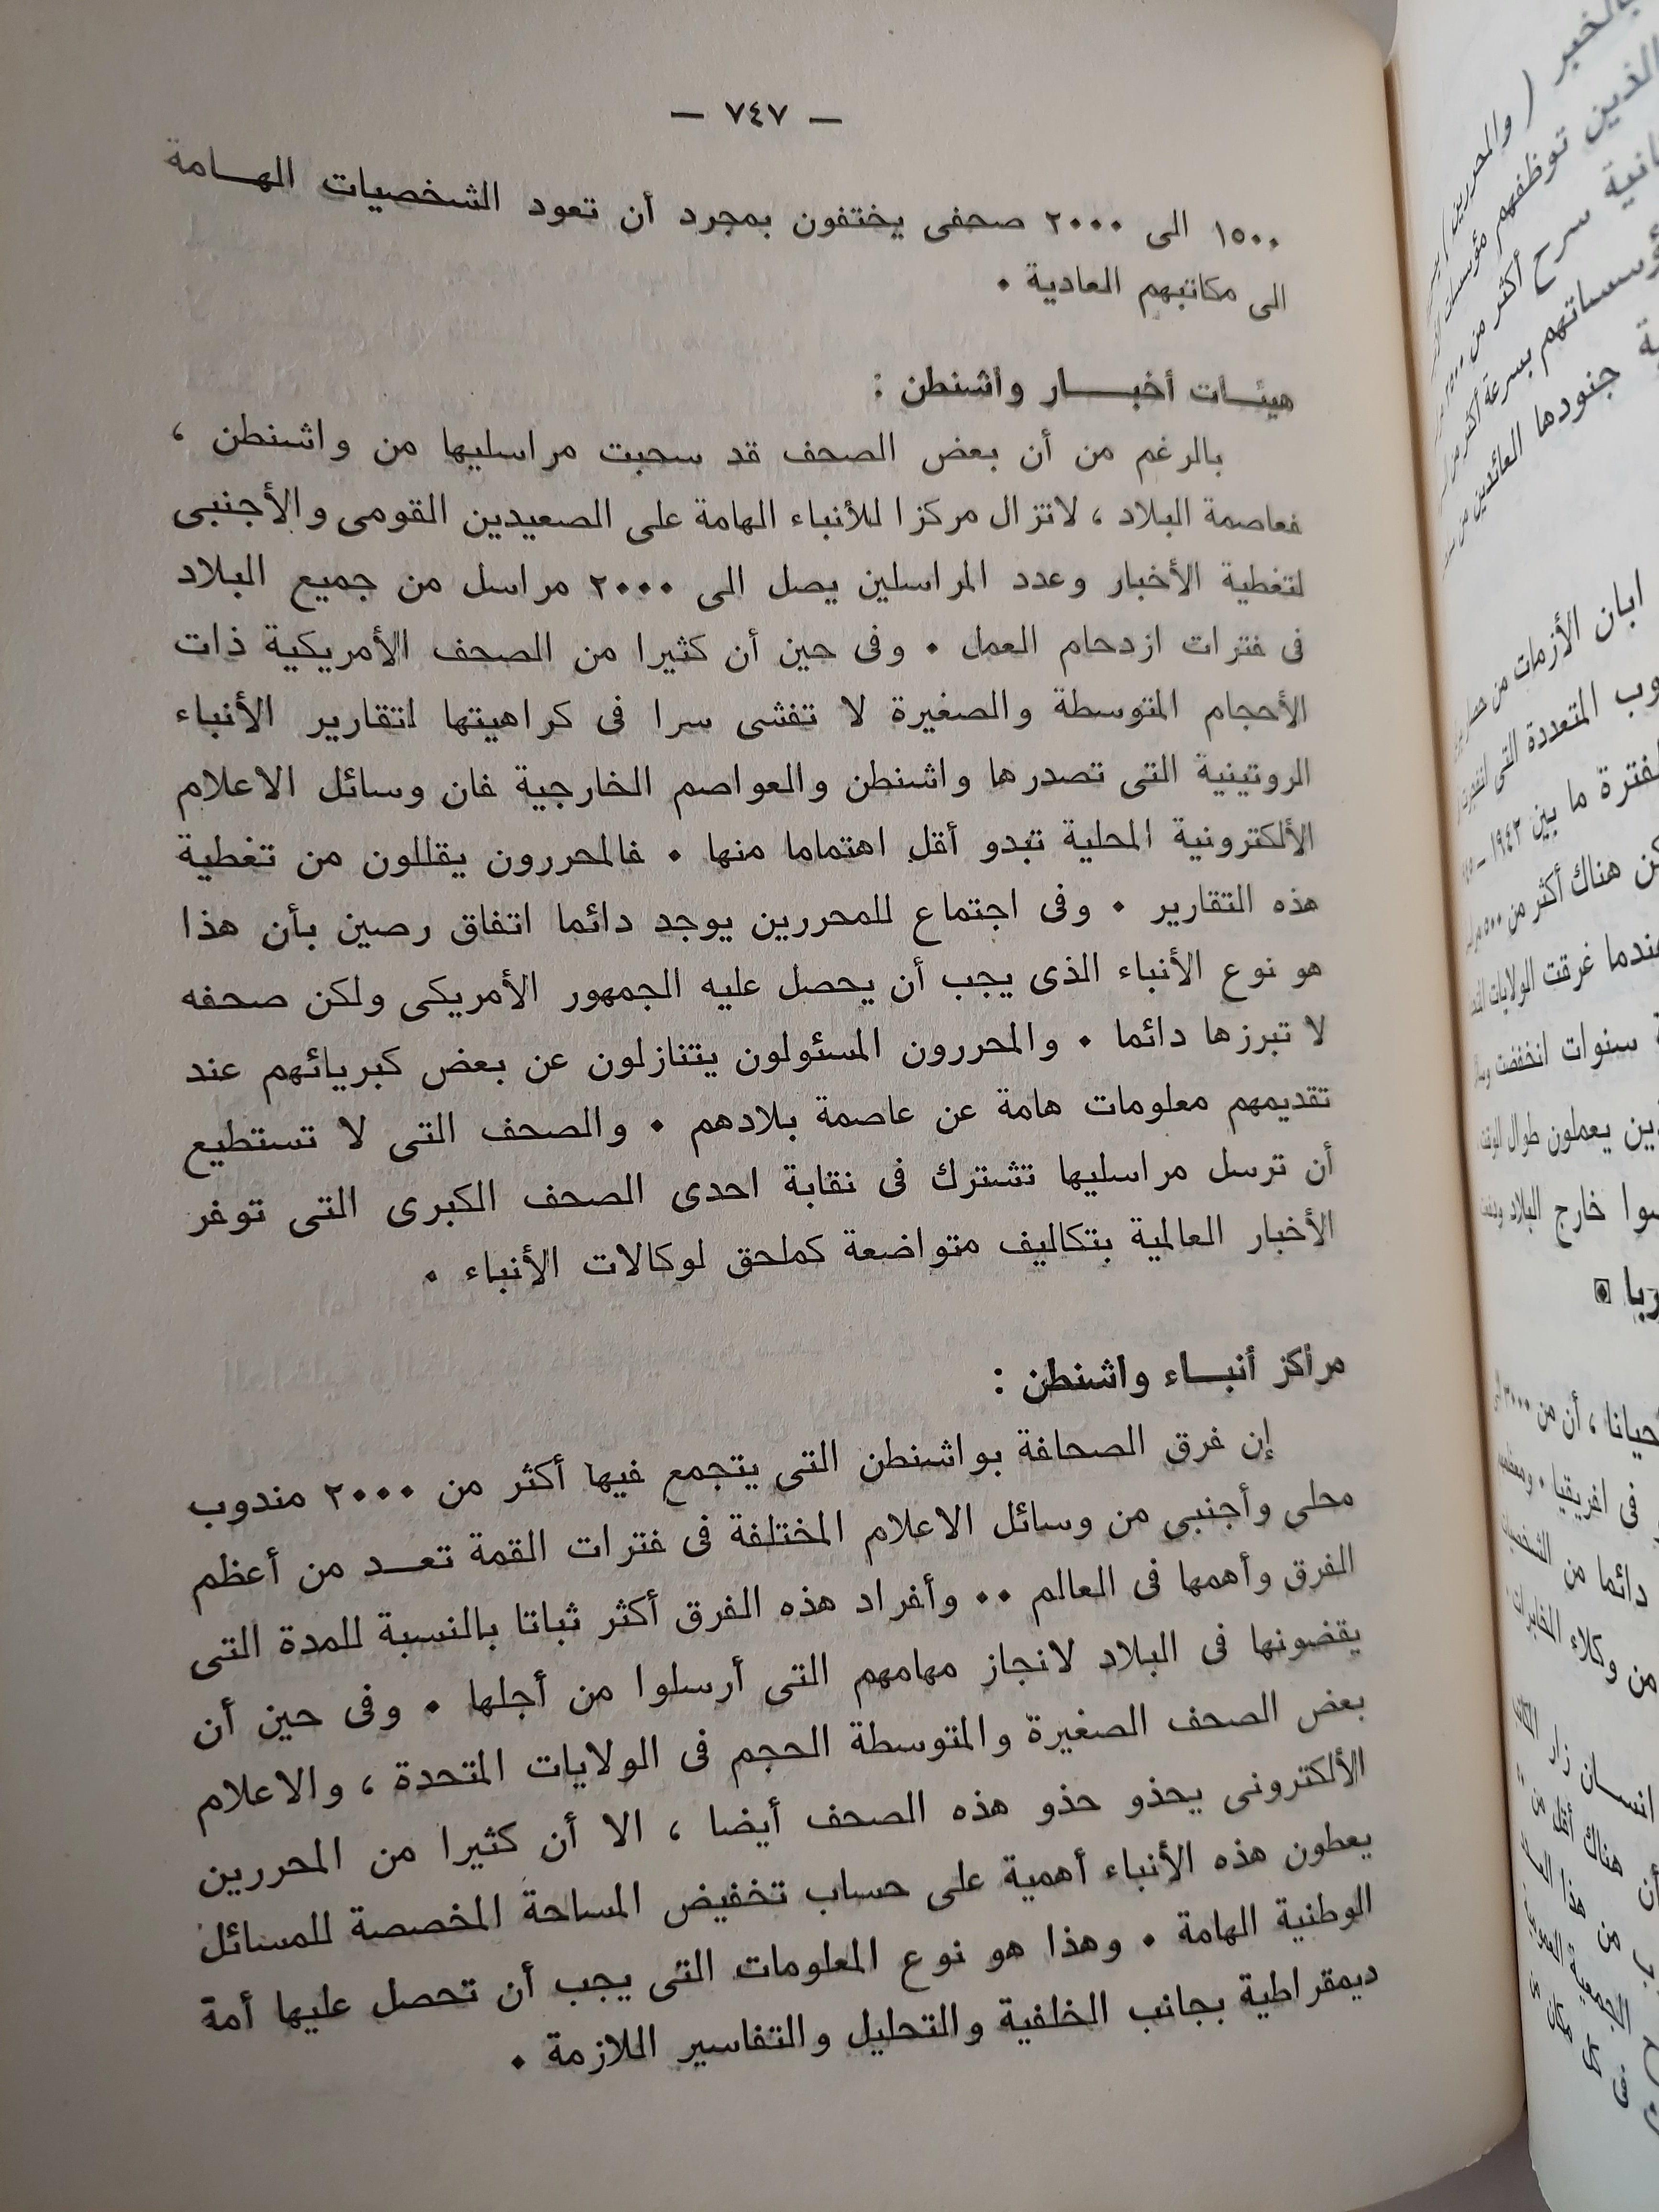 — ٧٤٧ —
١٥٠٠ الى ٢٠٠٠ صحفى يختفون بمجرد أن تعود الشخصيات الهـامة
الى مكاتبهم العادية ٠
هيئـات أخبـــار واشنطن :
بالرغم من أن بعض الصحف قد سحبت مراسليها من واشنطن ،
فعاصمة البلاد ، لاتزال مركزا للأنباء الهامة على الصعيدين القومى والأجنبى
لتغطية الأخبار وعدد المراسلين يصل الى ٢٠٠٠ مراسل من جميع البلاد
فى فترات ازدحام العمل ٠ وفى حين أن كثيرا من الصحف الأمريكية ذات
الأحجام المتوسطة والصغيرة لا تفشى سرا فى كراهيتها لتقارير الأنباء
الروتينية التى تصدرها واشنطن والعواصم الخارجية فان وسائل الاعلام
الألكترونية المحلية تبدو أقل اهتماما منها ٠ فالمحررون يقللون من تغطية
هذه التقارير ٠ وفى اجتماع للمحررين يوجد دائما اتفاق رصين بأن هذا
هو نوع الأنباء الذى يجب أن يحصل عليه الجمهور الأمريكى ولكن صحفه
لا تبرزها دائما ٠ والمحررون المسئولون يتنازلون عن بعض كبريائهم عند
تقديمهم معلومات هامة عن عاصمة بلادهم ٠ والصحف التى لا تستطيع
أن ترسل مراسليها تشترك فى نقابة احدى الصحف الكبرى التى توفر
الأخبار العالمية بتكاليف متواضعة كملحق لوكالات الأنباء ٠
مراكز أنبـاء واشنطن :
إن فرق الصحافة بواشنطن التى يتجمع فيها أكثر من ٢٠٠٠ مندوب
محلى وأجنبى من وسائل الاعلام المختلفة فى فترات القمة تعـد من أعظم
الفرق وأهمها فى العالم ٠٠ وأفراد هذه الفرق أكثر ثباتا بالنسبة للمدة التى
يقضونها فى البلاد لانجاز مهامهم التى أرسلوا من أجلها ٠ وفى حين أن
بعض الصحف الصغيرة والمتوسطة الحجم فى الولايات المتحدة ، والاعلام
الألكترونى يحذو حذو هذه الصحف أيضا ، الا أن كثيرا من المحررين
يعطون هذه الأنباء أهمية على حساب تخفيض المساحة المخصصة للمسائل
الوطنية الهامة ٠ وهذا هو نوع المعلومات التى يجب أن تحصل عليها أمة
ديمقراطية بجانب الخلفية والتحليل والتفاسير اللازمة ٠
الذين توظفهم
سرح أكثر من
جنودها العائدين من
ابان الأزمات من
المتعددة التى
ما بين ١٩٤٢ —
هناك أكثر من ٥٠٠
غرقت الولايات
سنوات انخفضت
يعملون طوال الوقت
خارج البلاد
، أن من ٣٠٠٠
فى افريقيا ٠ ومعظمهم
دائما من
من وكلاء المخابرات
انسـان زار
هناك أقل من
من هذا